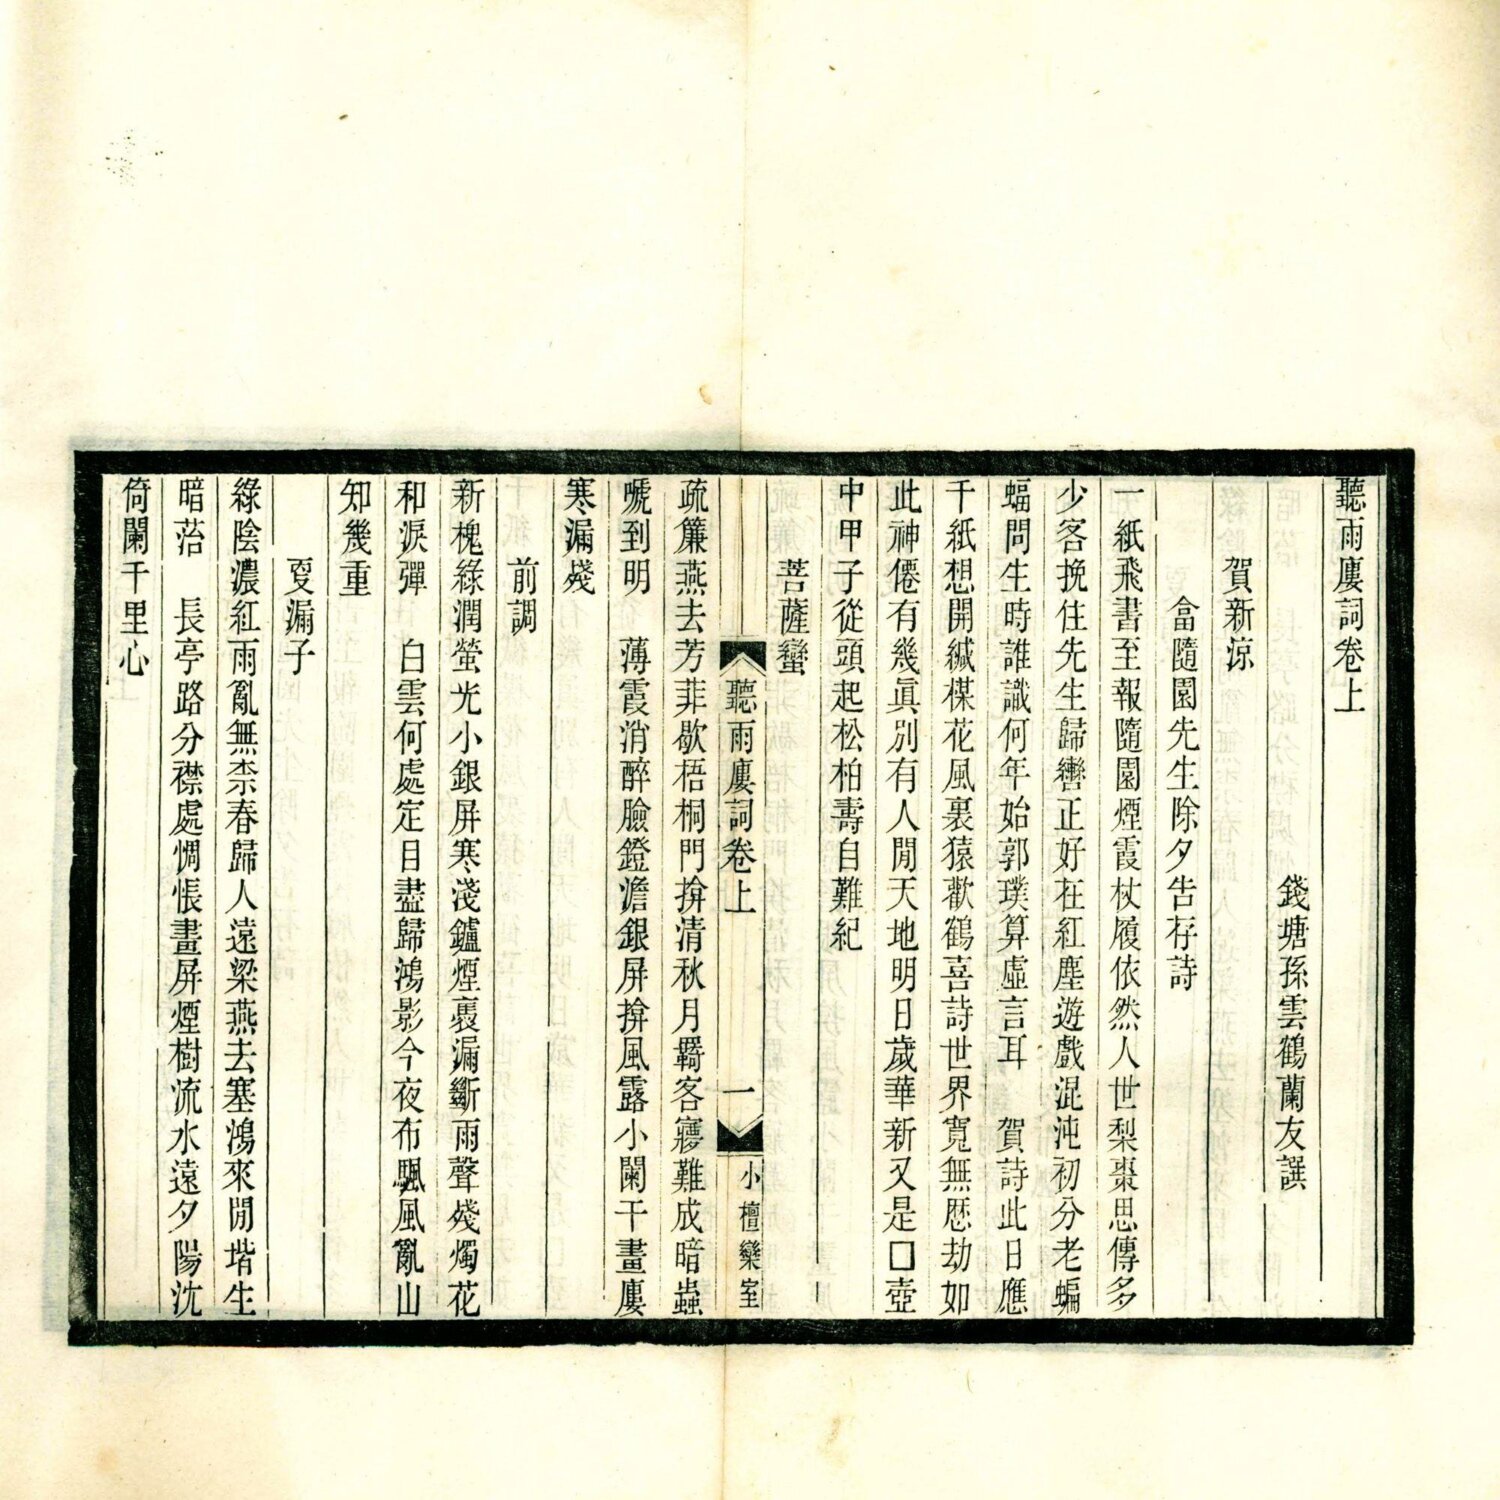 聽雨廔詞卷上
錢塘孫雲鶴蘭友譔
賀新涼
畣隨園先生除夕告存詩
一紙飛書至報隨園煙霞杖履依然人世梨棗思傳多
少客挽住先生歸轡正好在紅塵遊戲混沌初分老蝙
蝠問生時誰識何年始郭璞算虛言耳　賀詩此日應
千紙想開緘楳花風裏猿歡鶴喜詩世界寬無歷劫如
此神僊有幾眞別有人閒天地明日歲華新又是□壺
中甲子從頭起松柏壽自難紀
菩薩蠻
疏簾燕去芳菲歇梧桐門揜清秋月羇客寱難成暗蟲
嗁到明　薄霞消醉臉鐙澹銀屏揜風露小闌干畫廔
寒漏殘
前調
新槐綠潤螢光小銀屏寒淺鑪煙裊漏斷雨聲殘燭花
和淚彈　白雲何處定目盡歸鴻影今夜布颿風亂山
知幾重
叓漏子
綠陰濃紅雨亂無柰春歸人遠梁燕去塞鴻來閒堦生
暗菭　長亭路分襟處惆悵畫屏煙樹流水遠夕陽沈
倚闌千里心
聽雨廔詞卷上
一
小檀欒室